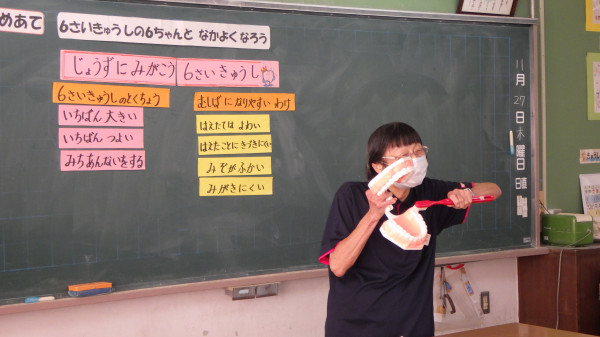 めあて
6さいきゅうしの6ちゃんと なかよくなろう
じょうずにみがこう 6さいきゅうし
6さいきゅうしのとくちょう
いちばん 大きい
いちばん つよい
みちあんないをする
むしばになりやすいわけ
はえたては よわい
はえたことにきづきにくい
みぞがふかい
みがきにくい
11月27日木曜日
日直